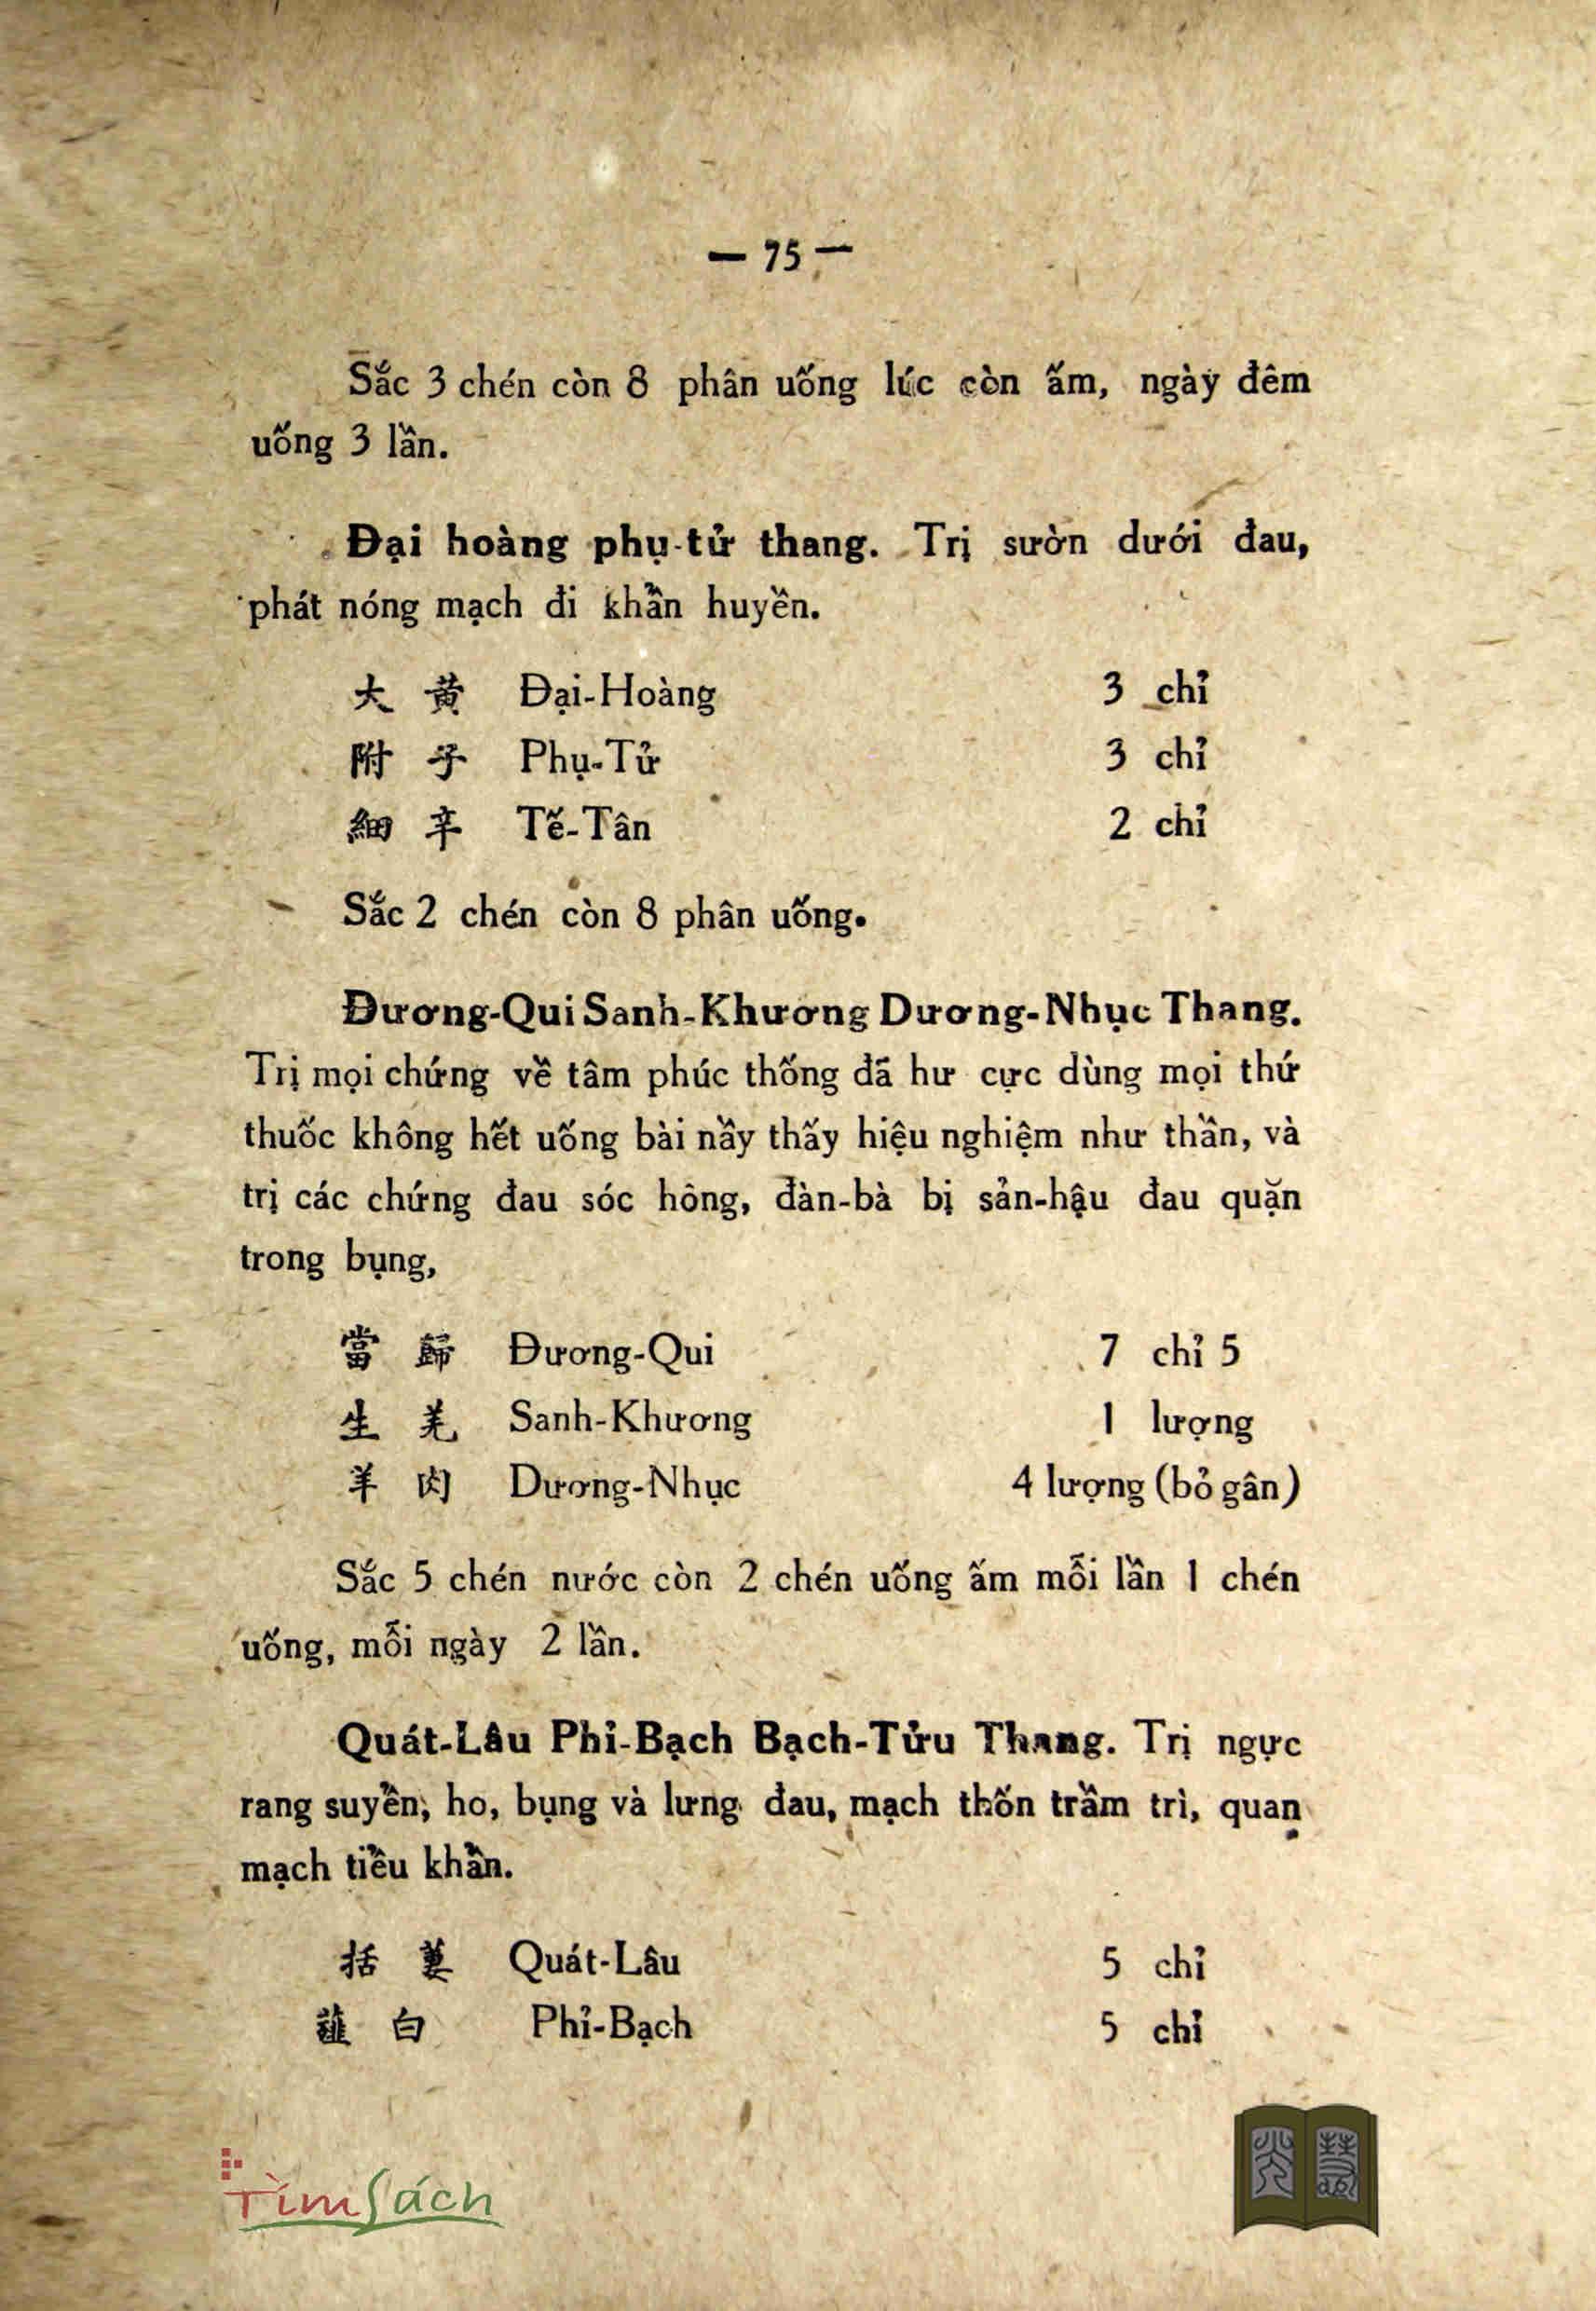 — 75 —
Sắc 3 chén còn 8 phân uống lúc còn ấm, ngày đêm
uống 3 lần.
Đại hoàng phụ-tử thang. Trị sườn dưới đau,
phát nóng mạch đi khẩn huyền.
大 黃 Đại-Hoàng 3 chỉ
附 子 Phụ-Tử 3 chỉ
細 辛 Tế-Tân 2 chỉ
Sắc 2 chén còn 8 phân uống.
Đương-Qui Sanh-Khương Dương-Nhục Thang.
Trị mọi chứng về tâm phúc thống đã hư cực dùng mọi thứ
thuốc không hết uống bài nầy thấy hiệu nghiệm như thần, và
trị các chứng đau sóc hông, đàn-bà bị sản-hậu đau quặn
trong bụng,
當 歸 Đương-Qui 7 chỉ 5
生 羌 Sanh-Khương 1 lượng
羊 肉 Dương-Nhục 4 lượng (bỏ gân)
Sắc 5 chén nước còn 2 chén uống ấm mỗi lần 1 chén
uống, mỗi ngày 2 lần.
Quát-Lâu Phỉ-Bạch Bạch-Tửu Thang. Trị ngực
rang suyễn, ho, bụng và lưng đau, mạch thốn trầm trì, quan
mạch tiểu khẩn.
括 蔞 Quát-Lâu 5 chỉ
薤 白 Phỉ-Bạch 5 chỉ
TìmSách